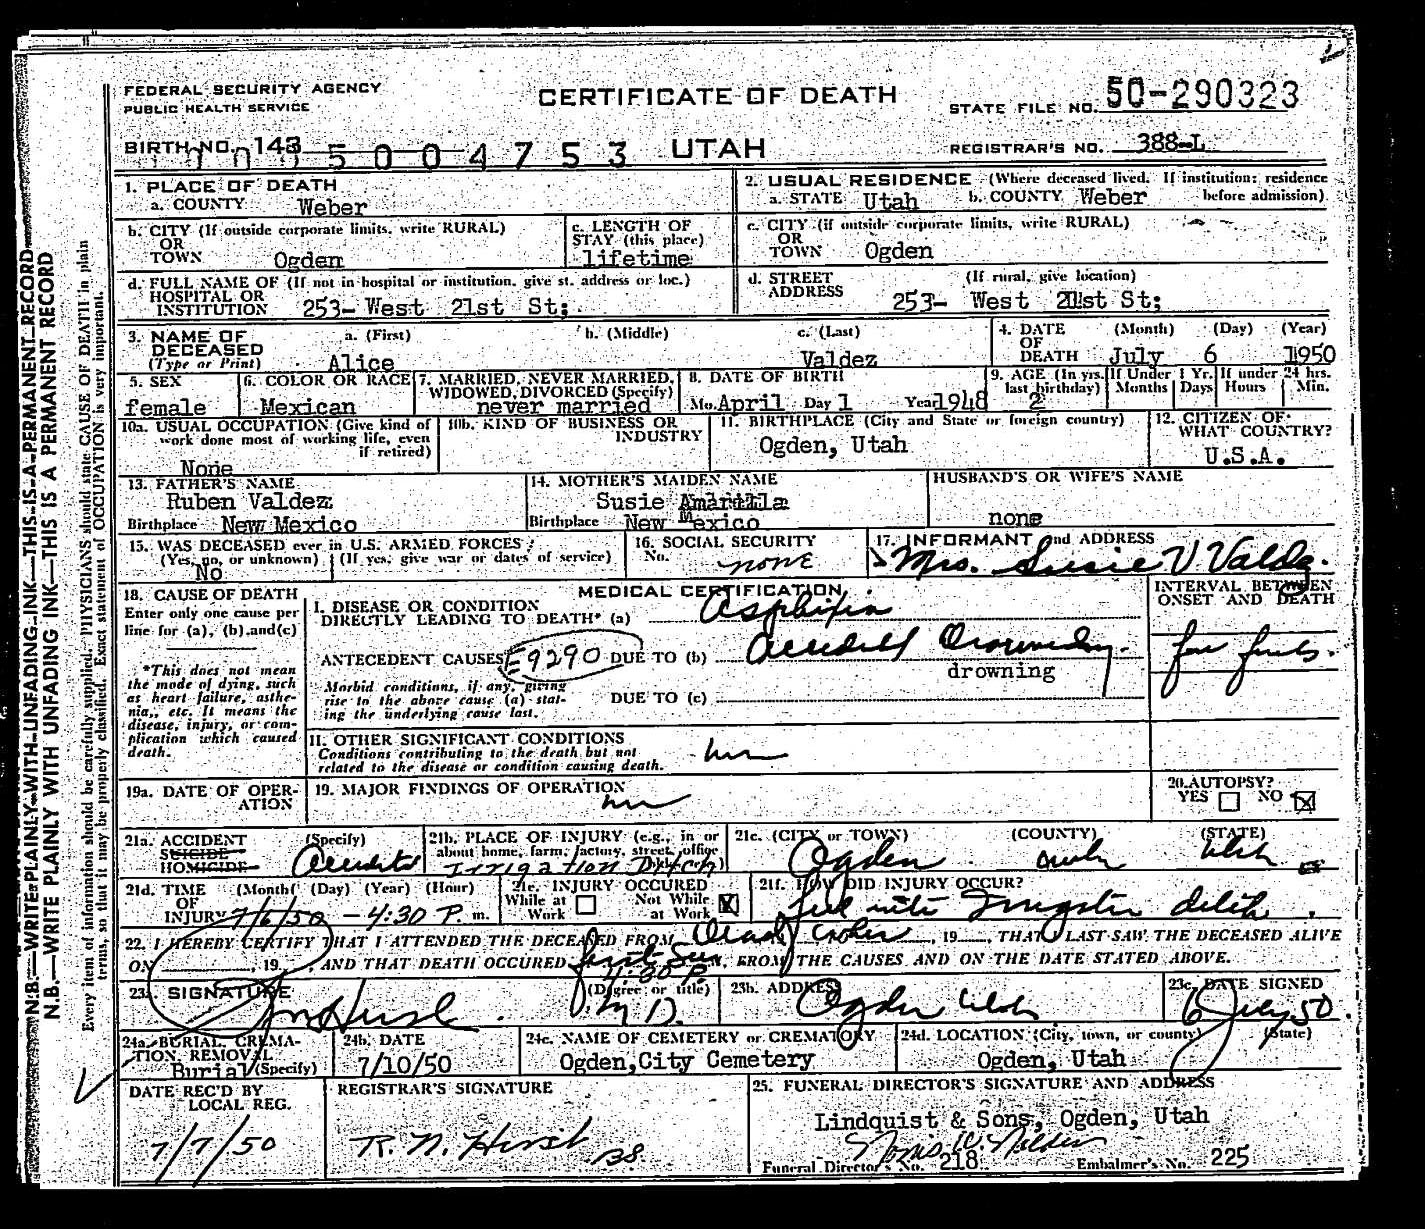 FEDERAL SECURITY AGENCY
PUBLIC HEALTH SERVICE
CERTIFICATE OF DEATH
STATE FILE NO. 50-290323
BIRTH NO. 143
5004753
UTAH
REGISTRAR'S NO. 388-L
1. PLACE OF DEATH
a. COUNTY Weber
2. USUAL RESIDENCE (Where deceased lived. If institution: residence before admission)
a. STATE Utah b. COUNTY Weber
b. CITY (If outside corporate limits, write RURAL)
OR
TOWN Ogden
c. LENGTH OF
STAY (this place)
lifetime
c. CITY (if outside corporate limits, write RURAL)
OR
TOWN Ogden
d. FULL NAME OF (If not in hospital or institution, give st. address or loc.)
HOSPITAL OR
INSTITUTION 253- West 21st St;
d. STREET (If rural, give location)
ADDRESS 253- West 21st St;
3. NAME OF
DECEASED
(Type or Print)
a. (First) b. (Middle) c. (Last)
Alice Valdez
4. DATE (Month) (Day) (Year)
OF
DEATH July 6 1950
5. SEX
female
6. COLOR OR RACE
Mexican
7. MARRIED, NEVER MARRIED,
WIDOWED, DIVORCED (Specify)
never married
8. DATE OF BIRTH
Mo. April Day 1 Year 1948
9. AGE (In yrs. last birthday) If Under 1 Yr. If under 24 hrs.
Months Days Hours Min.
2
10a. USUAL OCCUPATION (Give kind of
work done most of working life, even
if retired)
None
10b. KIND OF BUSINESS OR
INDUSTRY
11. BIRTHPLACE (City and State or foreign country)
Ogden, Utah
12. CITIZEN OF
WHAT COUNTRY?
U.S.A.
13. FATHER'S NAME
Ruben Valdez
Birthplace New Mexico
14. MOTHER'S MAIDEN NAME
Susie
Birthplace New Mexico
HUSBAND'S OR WIFE'S NAME
none
15. WAS DECEASED ever in U.S. ARMED FORCES?
(Yes, no, or unknown) (If yes, give war or dates of service)
No
16. SOCIAL SECURITY
No. none
17. INFORMANT and ADDRESS
Mrs. Susie V Valdez.
18. CAUSE OF DEATH
Enter only one cause per
line for (a), (b) and (c)
*This does not mean
the mode of dying, such
as heart failure, asthe-
nia, etc. It means the
disease, injury, or com-
plication which caused
death.
MEDICAL CERTIFICATION
INTERVAL BETWEEN
ONSET AND DEATH
I. DISEASE OR CONDITION
DIRECTLY LEADING TO DEATH* (a) Asphixia
ANTECEDENT CAUSES E9290 DUE TO (b) Accidental Drowning.
drowning
Morbid conditions, if any, giving
rise to the above cause (a) stat-
ing the underlying cause last.
DUE TO (c)
II. OTHER SIGNIFICANT CONDITIONS
Conditions contributing to the death but not
related to the disease or condition causing death.
19a. DATE OF OPER-
ATION
19. MAJOR FINDINGS OF OPERATION
20. AUTOPSY?
YES NO
21a. ACCIDENT (Specify)
SUICIDE
HOMICIDE
21b. PLACE OF INJURY (e.g., in or
about home, farm, factory, street, office
bldg., etc.)
Irrigation Ditch
21c. (CITY or TOWN) (COUNTY) (STATE)
Ogden Utah
21d. TIME (Month) (Day) (Year) (Hour)
OF
INJURY 7/6/50 - 4:30 P. m.
21e. INJURY OCCURED
While at Work Not While at Work
21f. HOW DID INJURY OCCUR?
22. I HEREBY CERTIFY THAT I ATTENDED THE DECEASED FROM , 19 , THAT I LAST SAW THE DECEASED ALIVE
ON , 19 , AND THAT DEATH OCCURED first seen 4:30 P. M. FROM THE CAUSES AND ON THE DATE STATED ABOVE.
23. SIGNATURE (Degree or title)
M D.
23b. ADDRESS
Ogden Utah
23c. DATE SIGNED
6 July 50.
24a. BURIAL, CREMA-
TION, REMOVAL
Burial (Specify)
24b. DATE
7/10/50
24c. NAME OF CEMETERY or CREMATORY
Ogden, City Cemetery
24d. LOCATION (City, town, or county) (State)
Ogden, Utah
DATE REC'D BY
LOCAL REG.
7/7/50
REGISTRAR'S SIGNATURE
R. N. Hirst
25. FUNERAL DIRECTOR'S SIGNATURE AND ADDRESS
Lindquist & Sons, Ogden, Utah
Funeral Director's No. 218 Embalmer's No. 225
N.B.—WRITE PLAINLY WITH UNFADING INK—THIS IS A PERMANENT RECORD
N.B.—WRITE PLAINLY WITH UNFADING INK—THIS IS A PERMANENT RECORD
Every item of information should be carefully supplied. PHYSICIANS should state CAUSE OF DEATH in plain
terms, so that it may be properly classified. Exact statement of OCCUPATION is very important.